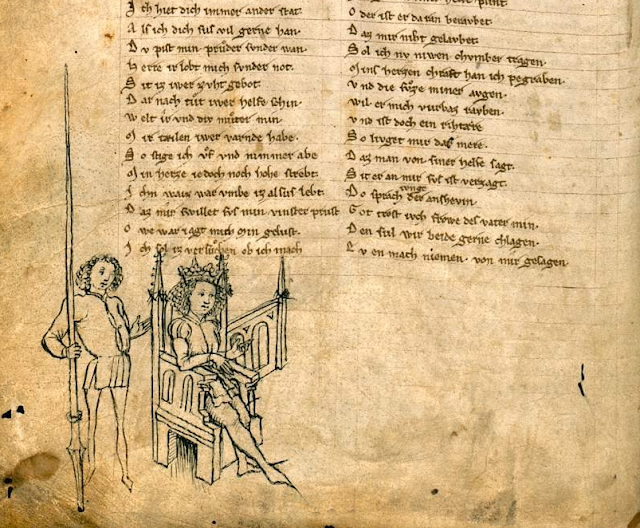 Ich hiet dich immer ander stat·
Als ich dich sus vil gerne han·
Dv pist min průder sunder wan·
Herre ir lobt mich sunder not·
Sit iz iwer zvht gebot·
Dar nach tůt iwer helfe schin·
Welt ir vnd div můter min·
Mir teilen iwer varnde habe·
So stige ich vf vnd nimmer abe
Min herze iedoch noch hohe strebt·
Ichn waiz war vmbe iz alsus lebt·
Daz mir swillet sus min vinster prust
Owe war iagt mich min gelust·
Ich sol iz versůchen ob ich mach
plint·
Oder ist er da von betavbet·
Daz mir niht gelavbet·
Sol ich nv niwen chumber tragen·
Mins herzen chraft han ich pegraben·
vnd die sůze miner augen·
wil er mich vurbaz rauben·
vnd ist doch ein rihtære
So livget mir daz mere·
Daz man von siner helfe sagt·
Sit er an mir sus ist verzagt·
Do sprach der iunge anshevin·
Got trost ivch frowe des vater min·
Den sul wir beide gerne chlagen·
Ev en mach niemen· von mir gesagen·